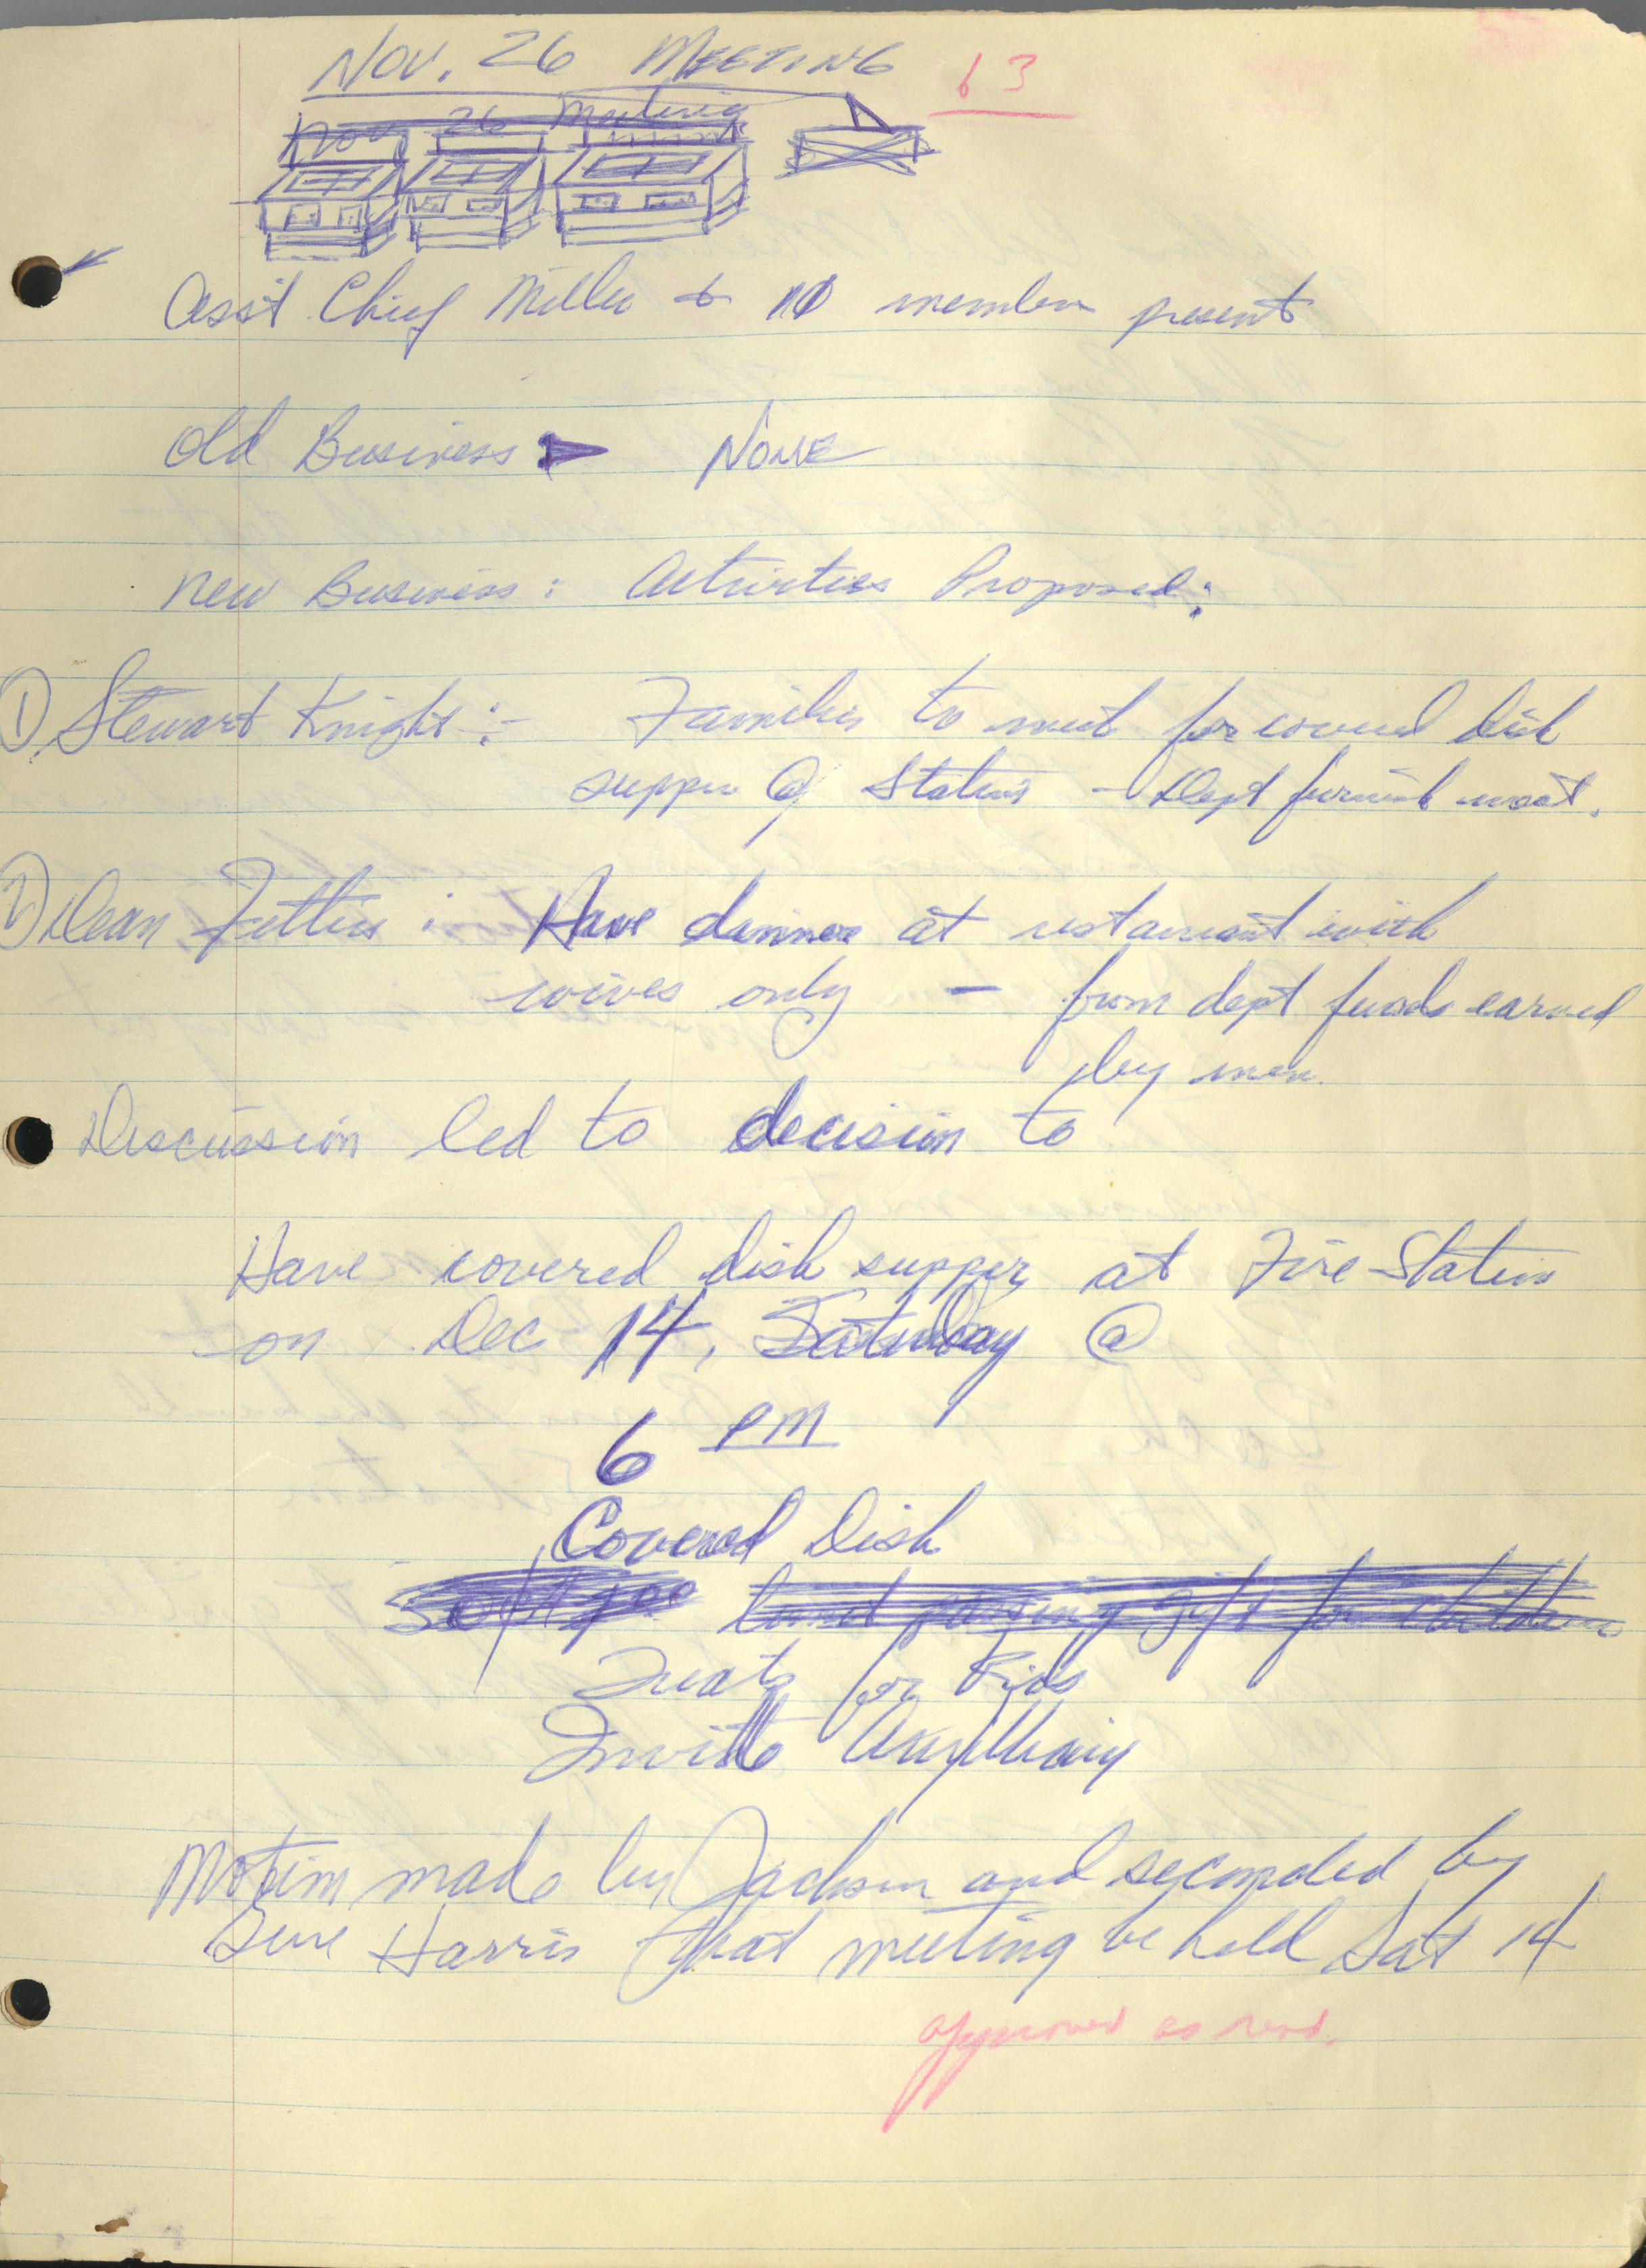 Nov. 26 MEETING 63
Nov 26 Meeting
Ass't Chief Miller + 10 members present
Old Business NONE
New Business: Activities Proposed:
① Stewart Knight:- Families to meet for covered dish
supper @ Station - Dept furnish meat.
② Dean : Have dinner at restaurant with
wives only - from dept funds earned
by men.
Discussion led to decision to
Have covered dish supper at Fire Station
on Dec 14, Saturday @
6 PM
Covered Dish
gift for children
Treats for Kids
Invite Auxilliary
Motion made by Jackson and seconded by
Gene Harris that meeting be held Sat 14
approved as read.